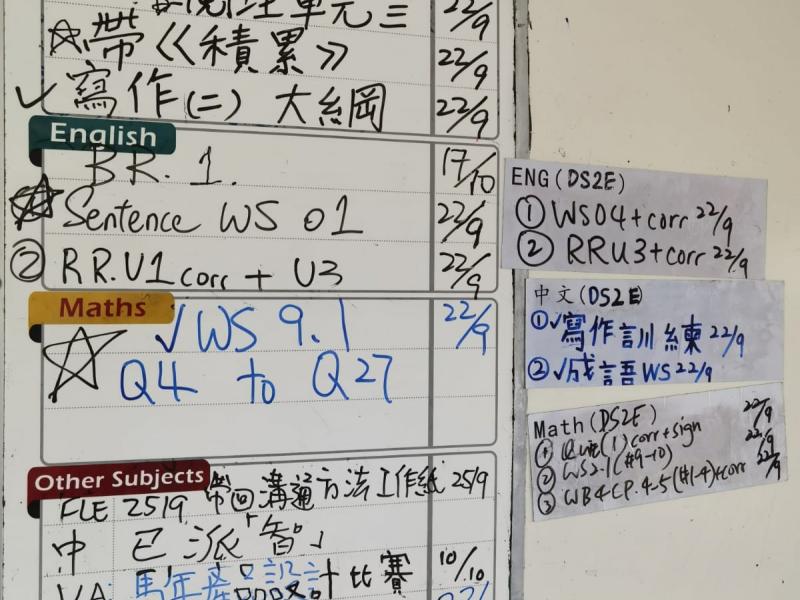 理單元三 22/9
帶《積累》 22/9
✓ 寫作(二) 大綱 22/9
English
BR. 1. 17/10
Sentence WS 01 22/9
② RR.U1 corr + U3 22/9
Maths
✓WS 9.1 22/9
Q4 to Q27
Other Subjects
FLE 25/9 帶回溝通方法工作紙 25/9
中 已派「智」
VA 馬年產品設計比賽 10/10
ENG (DS2E)
① WS04+corr 22/9
② RRU3+corr 22/9
中文 (DS2E)
①✓寫作訓練 22/9
②✓成語WS 22/9
Math (DS2E) 22/9
① Quiz(1) corr+sign 22/9
② WS2.1(#9-10) 22/9
③ WB4CP.4-5(#1-4)+corr